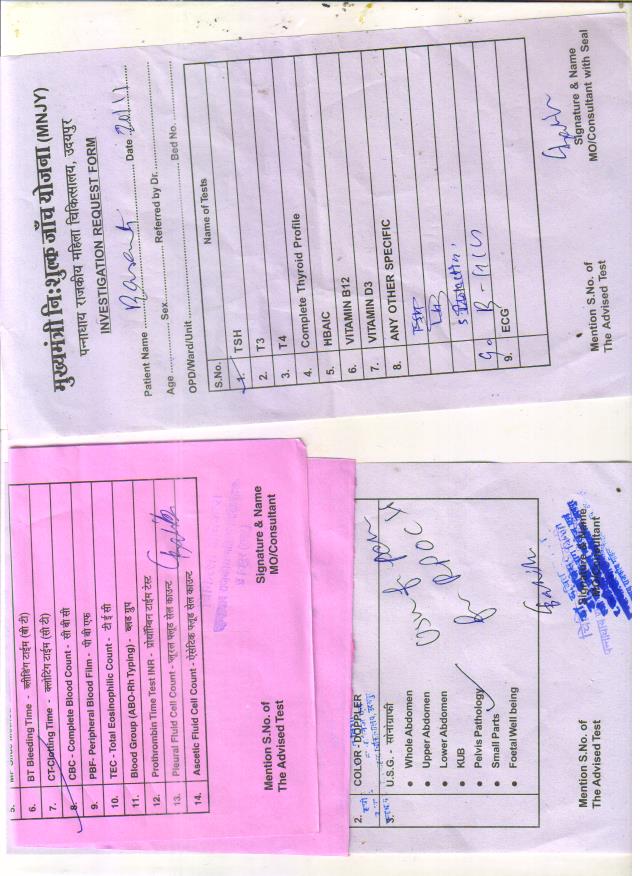 मुख्यमंत्री निःशुल्क जाँच योजना (MNJY)
पन्नाधाय राजकीय महिला चिकित्सालय, उदयपुर
INVESTIGATION REQUEST FORM
Patient Name Basanti Date 20/11
Age Sex Referred by Dr.
OPD/Ward/Unit Bed No.
S.No. Name of Tests
1. TSH
2. T3
3. T4
4. Complete Thyroid Profile
5. HBAIC
6. VITAMIN B12
7. VITAMIN D3
8. ANY OTHER SPECIFIC
FSH
LH
S. Prolactin
β-HCG
9. ECG
Mention S.No. of
The Advised Test
Signature & Name
MO/Consultant with Seal
5.
6. BT Bleeding Time - ब्लीडिंग टाईम (बी टी)
7. CT-Clotting Time - क्लोटिंग टाईम (सी टी)
8. CBC - Complete Blood Count - सी बी सी
9. PBF- Peripheral Blood Film - पी बी एफ
10. TEC -Total Eosinophilic Count - टी ई सी
11. Blood Group (ABO-Rh Typing) - ब्लड ग्रुप
12. Prothrombin Time Test INR - प्रोथ्रोम्बिन टाईम टेस्ट
13. Pleural Fluid Cell Count - प्लूरल फ्लूड सेल काउन्ट
14. Ascetic Fluid Cell Count - ऐसेटिक फ्लूड सेल काउन्ट
Mention S.No. of
The Advised Test
Signature & Name
MO/Consultant
2. COLOR -DOPPLER
3. U.S.G. - सोनोग्राफी
• Whole Abdomen
• Upper Abdomen
• Lower Abdomen
• KUB
• Pelvis Pathology
• Small Parts
• Foetal Well being
USG
for RPOC
Mention S.No. of
The Advised Test
Signature & Name
MO/Consultant